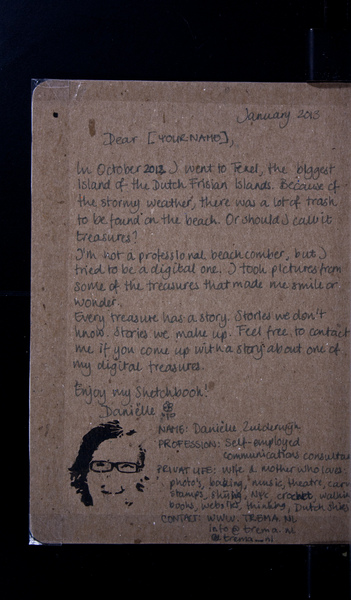 January 2013
Dear [YOUR NAME],
In October 2012 I went to Texel, the biggest
island of the Dutch Frisian Islands. Because of
the stormy weather, there was a lot of trash
to be found on the beach. Or should I call it
treasures?
I'm not a professional beachcomber, but I
tried to be a digital one. I took pictures from
some of the treasures that made me smile or
wonder.
Every treasure has a story. Stories we don't
know. Stories we make up. Feel free to contact
me if you come up with a story about one of
my digital treasures.
Enjoy my Sketchbook!
Daniëlle
NAME: Daniëlle Zuiderwijk
PROFESSION: Self-employed
communications consultan
PRIVATE LIFE: wife & mother who loves
photo's, baking, music, theatre,
stamps, NYC, crochet, walkin
books, websites, thinking, Dutch skies
CONTACT: WWW.TREMA.NL
info@trema.nl
@trema_nl